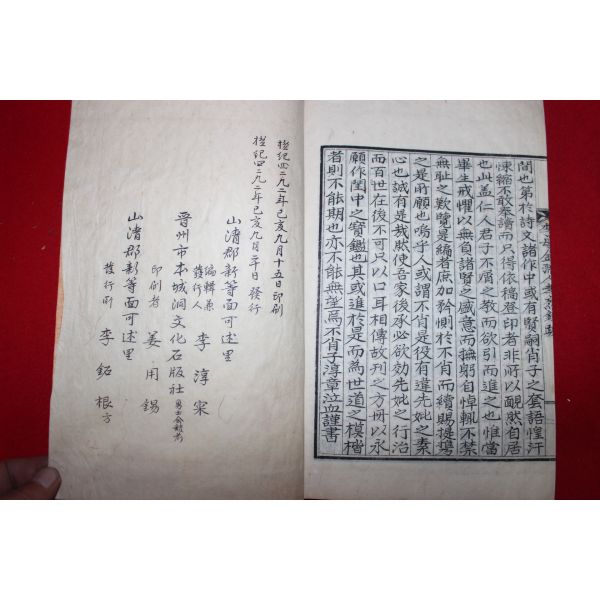 間也第於詩文諸作中或有賢嗣肖子之套語惶汗
悚縮不敢奉讀而只得依稿登印者非所以靦然自居
也此盖仁人君子不屑之敎而欲引而進之也惟當
畢生戒懼以無負諸賢之盛意而撫躬自悼輒不禁
無耻之歎覽是編者庶加矜惻於不肖而續賜提
之是所願也嗚乎人或謂不肖是役有違先妣之素
心也誠有是哉然使吾家後承必欲効先妣之行治
而百世在後不可只以口耳相傳故刊之方冊以永
願作閨中之寶鑑也其或進於是而爲世道之模楷
者則不能期也亦不能無望焉不肖子淳章泣血謹書
檀紀四二九二年己亥九月十五日印刷
檀紀四二九二年己亥九月二十日發行
山淸郡新等面可述里
編輯兼
發行人 李淳
晋州市本城洞文化石版社
印刷者 姜用錫
山淸郡新等面可述里
發行所 李鉐根方